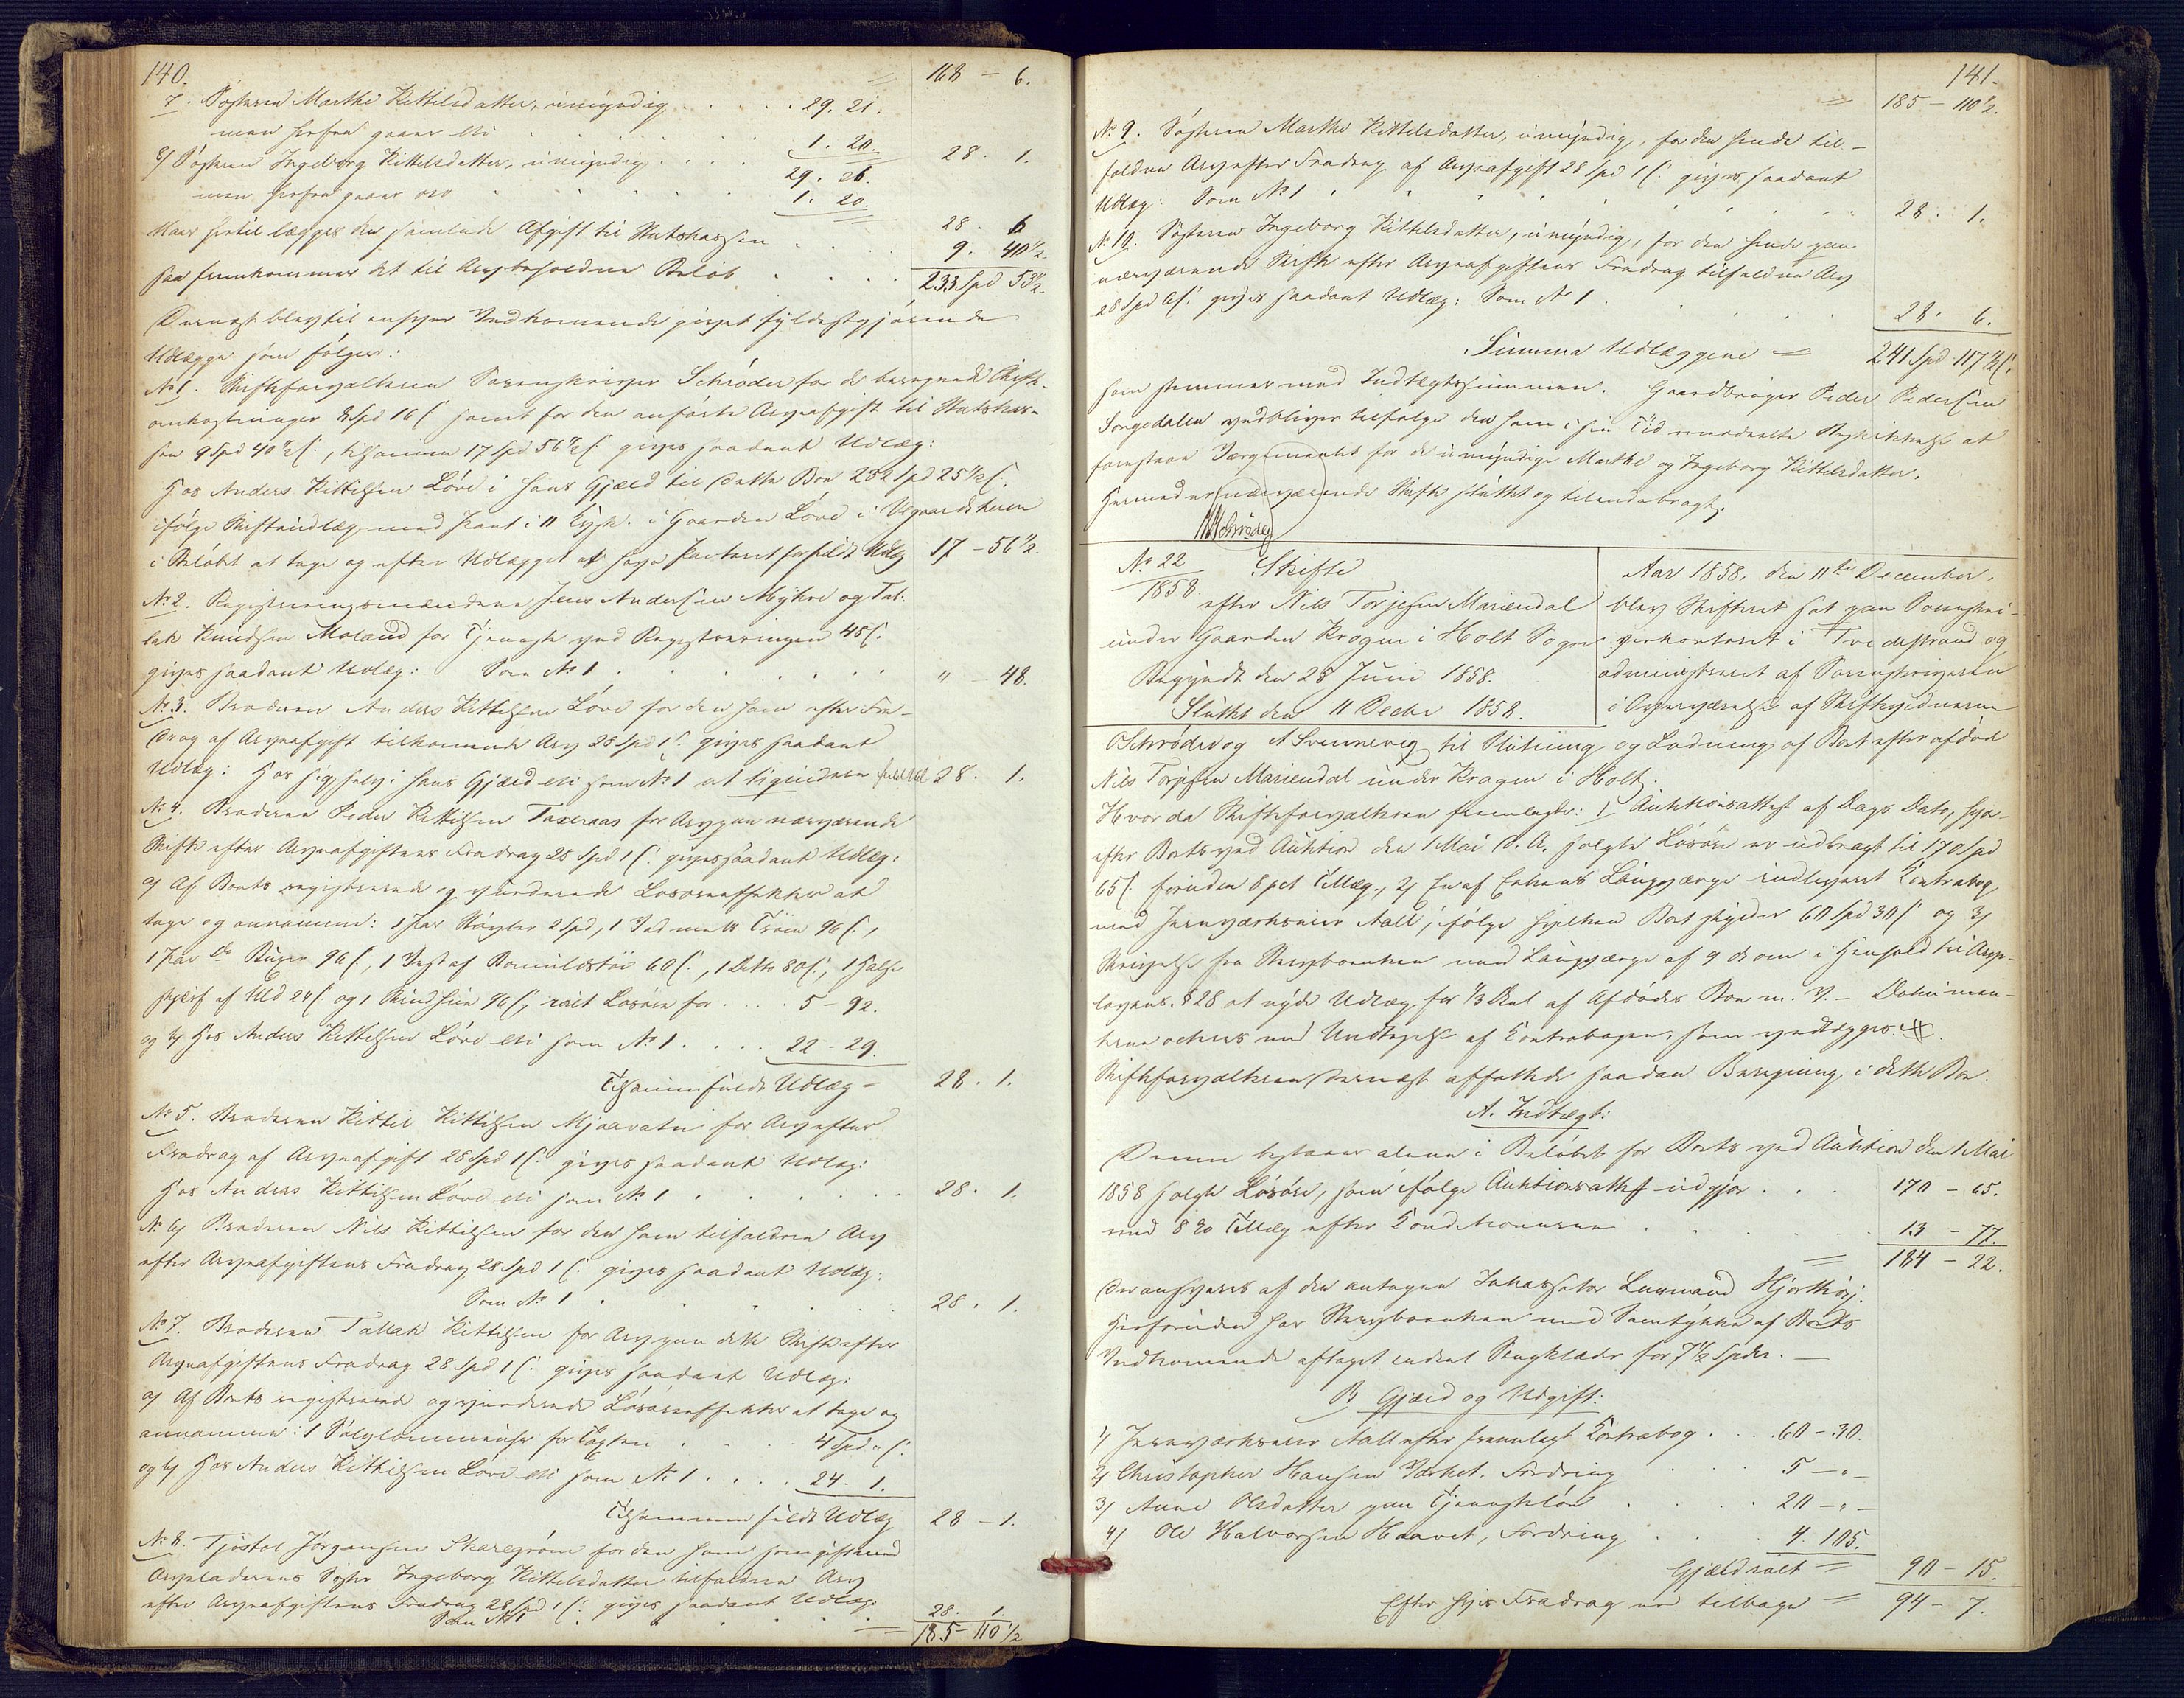 140.
= 168 - 6.
7. Søsteren Marthe Kittelsdatter, umyndig . . . . 29. 21.
men herfra gaaer oto . . . . 1. 20. 28. 1.
8) Søsteren Ingeborg Kittelsdatter, umyndig . . . . 29. 26.
men herfra gaaer oso . . . . 1. 20. 28. 6
Naar hertil lægges den samlede Afgift til Statskassen . . 9. 40½.
saa fremkommer det til Arv beholdne Beløb . . . . 233 Spd 53½.
Dernæst blev til enhver Vedkommende givet fyldestgjørende
Udlægge som følger:
No 1. Skifteforvalteren Sorenskriver Schrøder for de beregnede Skifte-
omkostninger 8 Spd 16 ſ samt for den anførte Arveafgift til Statskas-
sen 9 Spd 40½ ſ., tilsammen 17 Spd 56½ ſ gives saadant Udlæg:
Hos Anders Kittelsen Løvd i hans Gjæld til dette Boe 232 Spd 25½ ſ.
ifølge Skifteudlæg med Pant i 11 Lispd. i Gaarden Løvd i Vegaardsheien
i Beløbet at tage og efter Udlægget at have Panteret for fuldt Udlæg 17 - 56½.
No 2. Registreringsmændene Jens Andersen Myhre og Tal-
lak Knudsen Moland for Tjeneste ved Registreringen 48 ſ.
gives saadant Udlæg: Som No 1 . . . . . " - 48.
No 3. Broderen Anders Kittelsen Løvd for den ham efter Fra-
drag af Arveafgift tilkommende Arv 28 Spd 1 ſ. gives saadant
Udlæg: Hos sig selv i hans Gjæld oti som No 1 at liquidere fuldt Udl. 28. 1.
No 4. Broderen Peder Kittelsen Taxeraas for Arv paa nærværende
Skifte efter Arveafgiftens Fradrag 28 Spd 1 ſ. gives saadant Udlæg:
a) Af Boets registrerede og vurderede Løsøreeffekter at
tage og annamme: 1 Par Støvler 2 Spd, 1 96 ſ.,
1 Par do Buxer 96 ſ., 1 Vest af Bomuldstøi 60 ſ., 1 Ditto 80 ſ., 1 Hals-
skjerf af Uld 24 ſ. og 1 Skindhue 96 ſ, ialt Løsøre for . . . . 5 - 92.
og b) Hos Anders Kittelsen Løvd oti som No 1 . . . . 22 - 29.
Tilsammen fuldt Udlæg - 28. 1.
No 5. Broderen Kittil Kittilsen Mjaavatn for Arv efter
Fradrag af Arveafgift 28 Spd 1 ſ. gives saadant Udlæg:
Hos Anders Kittilsen Løvd oti som No 1 . . . . . 28. 1.
No 6) Broderen Nils Kittilsen for den ham tilfaldne Arv
efter Arveafgiftens Fradrag 28 Spd 1 ſ. gives saadant Udlæg:
Som No 1 . . . . . 28. 1.
No 7. Broderen Tallak Kittilsen for Arv paa dette Skifte efter
Arveafgiftens Fradrag 28 Spd 1 ſ. gives saadant Udlæg:
a) Af Boets registrerede og vurderede Løsøreeffekter at tage og
annamme: 1 Sølvlommeuhr for Taxten . . . . 4 Spd " ſ
og b) Hos Anders Kittilsen Løvd oti som No 1 . . . . 24. 1.
Tilsammen fuldt Udlæg 28 - 1.
No 8. Tjøstol Jørgensen Skaregrøm for den ham som gift med
Arveladerens Søster Ingeborg Kittelsdatter tilfaldne Arv
efter Arveafgiftens Fradrag 28 Spd 1 ſ. gives saadant Udlæg:
Som No 1 . . . . 28. 1.
= 185 - 110½
141.
= 185 - 110½.
No 9. Søsteren Marthe Kittelsdatter, umyndig, for den hende til-
faldne Arv efter Fradrag af Arveafgift 28 Spd 1 ſ. gives saadant
Udlæg: Som No 1 . . . . . 28. 1.
No 10. Søsteren Ingeborg Kittelsdatter, umyndig, for den hende paa
nærværende Skifte efter Arveafgiftens Fradrag tilfaldne Arv
28 Spd 6 ſ. gives saadant Udlæg: Som No 1 . . . . 28. 6.
Summa Udlæggene = 241 Spd 117½ ſ.
som stemmer med Indtægtssummen. Gaardbruger Peder Pedersen
Songedalen vedbliver tilfølge den ham i sin Tid meddeelte Beskikkelse at
forestaae Værgemaalet for de umyndige Marthe og Ingeborg Kittelsdatter.
Hermed er nærværende Skifte sluttet og tilendebragt.
Schrøder
No 22
1858.
Skifte
efter Nils Torjesen Mariendal
under Gaarden Kragen i Holt Sogn
Begyndt den 28 Juni 1858.
Sluttet den 11 Decbr 1858.
Aar 1858, den 11te December,
blev Skifteret sat paa Sorenskri-
verkontoret i Tvedestrand og
administreret af Sorenskriveren
i Overværelse af Skiftevidnerne
O Schrøder og A Svennevig til Slutning og Lodning af Boet efter afdøde
Nils Torjesen Mariendal under Kragen i Holt.
Hvor da Skifteforvalteren fremlagde: 1) Auktionsattest af Dags Dato, hvor-
efter Boets ved Auktion den 1 Mai d. A. solgte Løsøre er udbragt til 170 Spd
65 ſ. foruden 8 pct Tillæg, 2) En af Enkens Laugværge indleveret Contrabog
med Jernværkseier Aall, ifølge hvilken Boet skylder 60 Spd 30 ſ. og 3)
Skrivelse fra Stervboenken med Laugværge af 9 ds om i Henhold til Arve-
lovens § 28 at nyde Udlæg for 1/3 Deel af Afdødes Boe m. V. - Dokumen-
terne med Undtagelse af Contrabogen, som vedlægges.
Skifteforvalteren dernæst affattede saadan Beregning i dette Boe:
A. Indtægt:
Denne bestaaer alene i Beløbet for Boets ved Auktion den 1 Mai
1858 solgte Løsøre, som ifølge Auktionsattest udgjør . . . 170 - 65.
med 8 % Tillæg efter Conditionerne . . . . . 13 - 77.
= 184 - 22.
der ansvares af den antagne Inkassator Lensmand Hjorthøy.
Herforuden har Stervboenken med Samtykke af Boets
Vedkommende aftaget endeel Sengklæder for 7½ Spdr. -
B Gjæld og Udgift:
1) Jernværkseier Aall efter fremlagt Contrabog . . . 60 - 30.
2) Christopher Hansen Fordring . . 5 - " -
3) Anne Olsdatter paa Tjenesteløn . . . . 20 - " -
4) Ole Halvorsen Haavet, Fordring . . 4. 105.
Gjæld ialt = 90 - 15.
Efter hvis Fradrag er tilbage = 94 - 7.